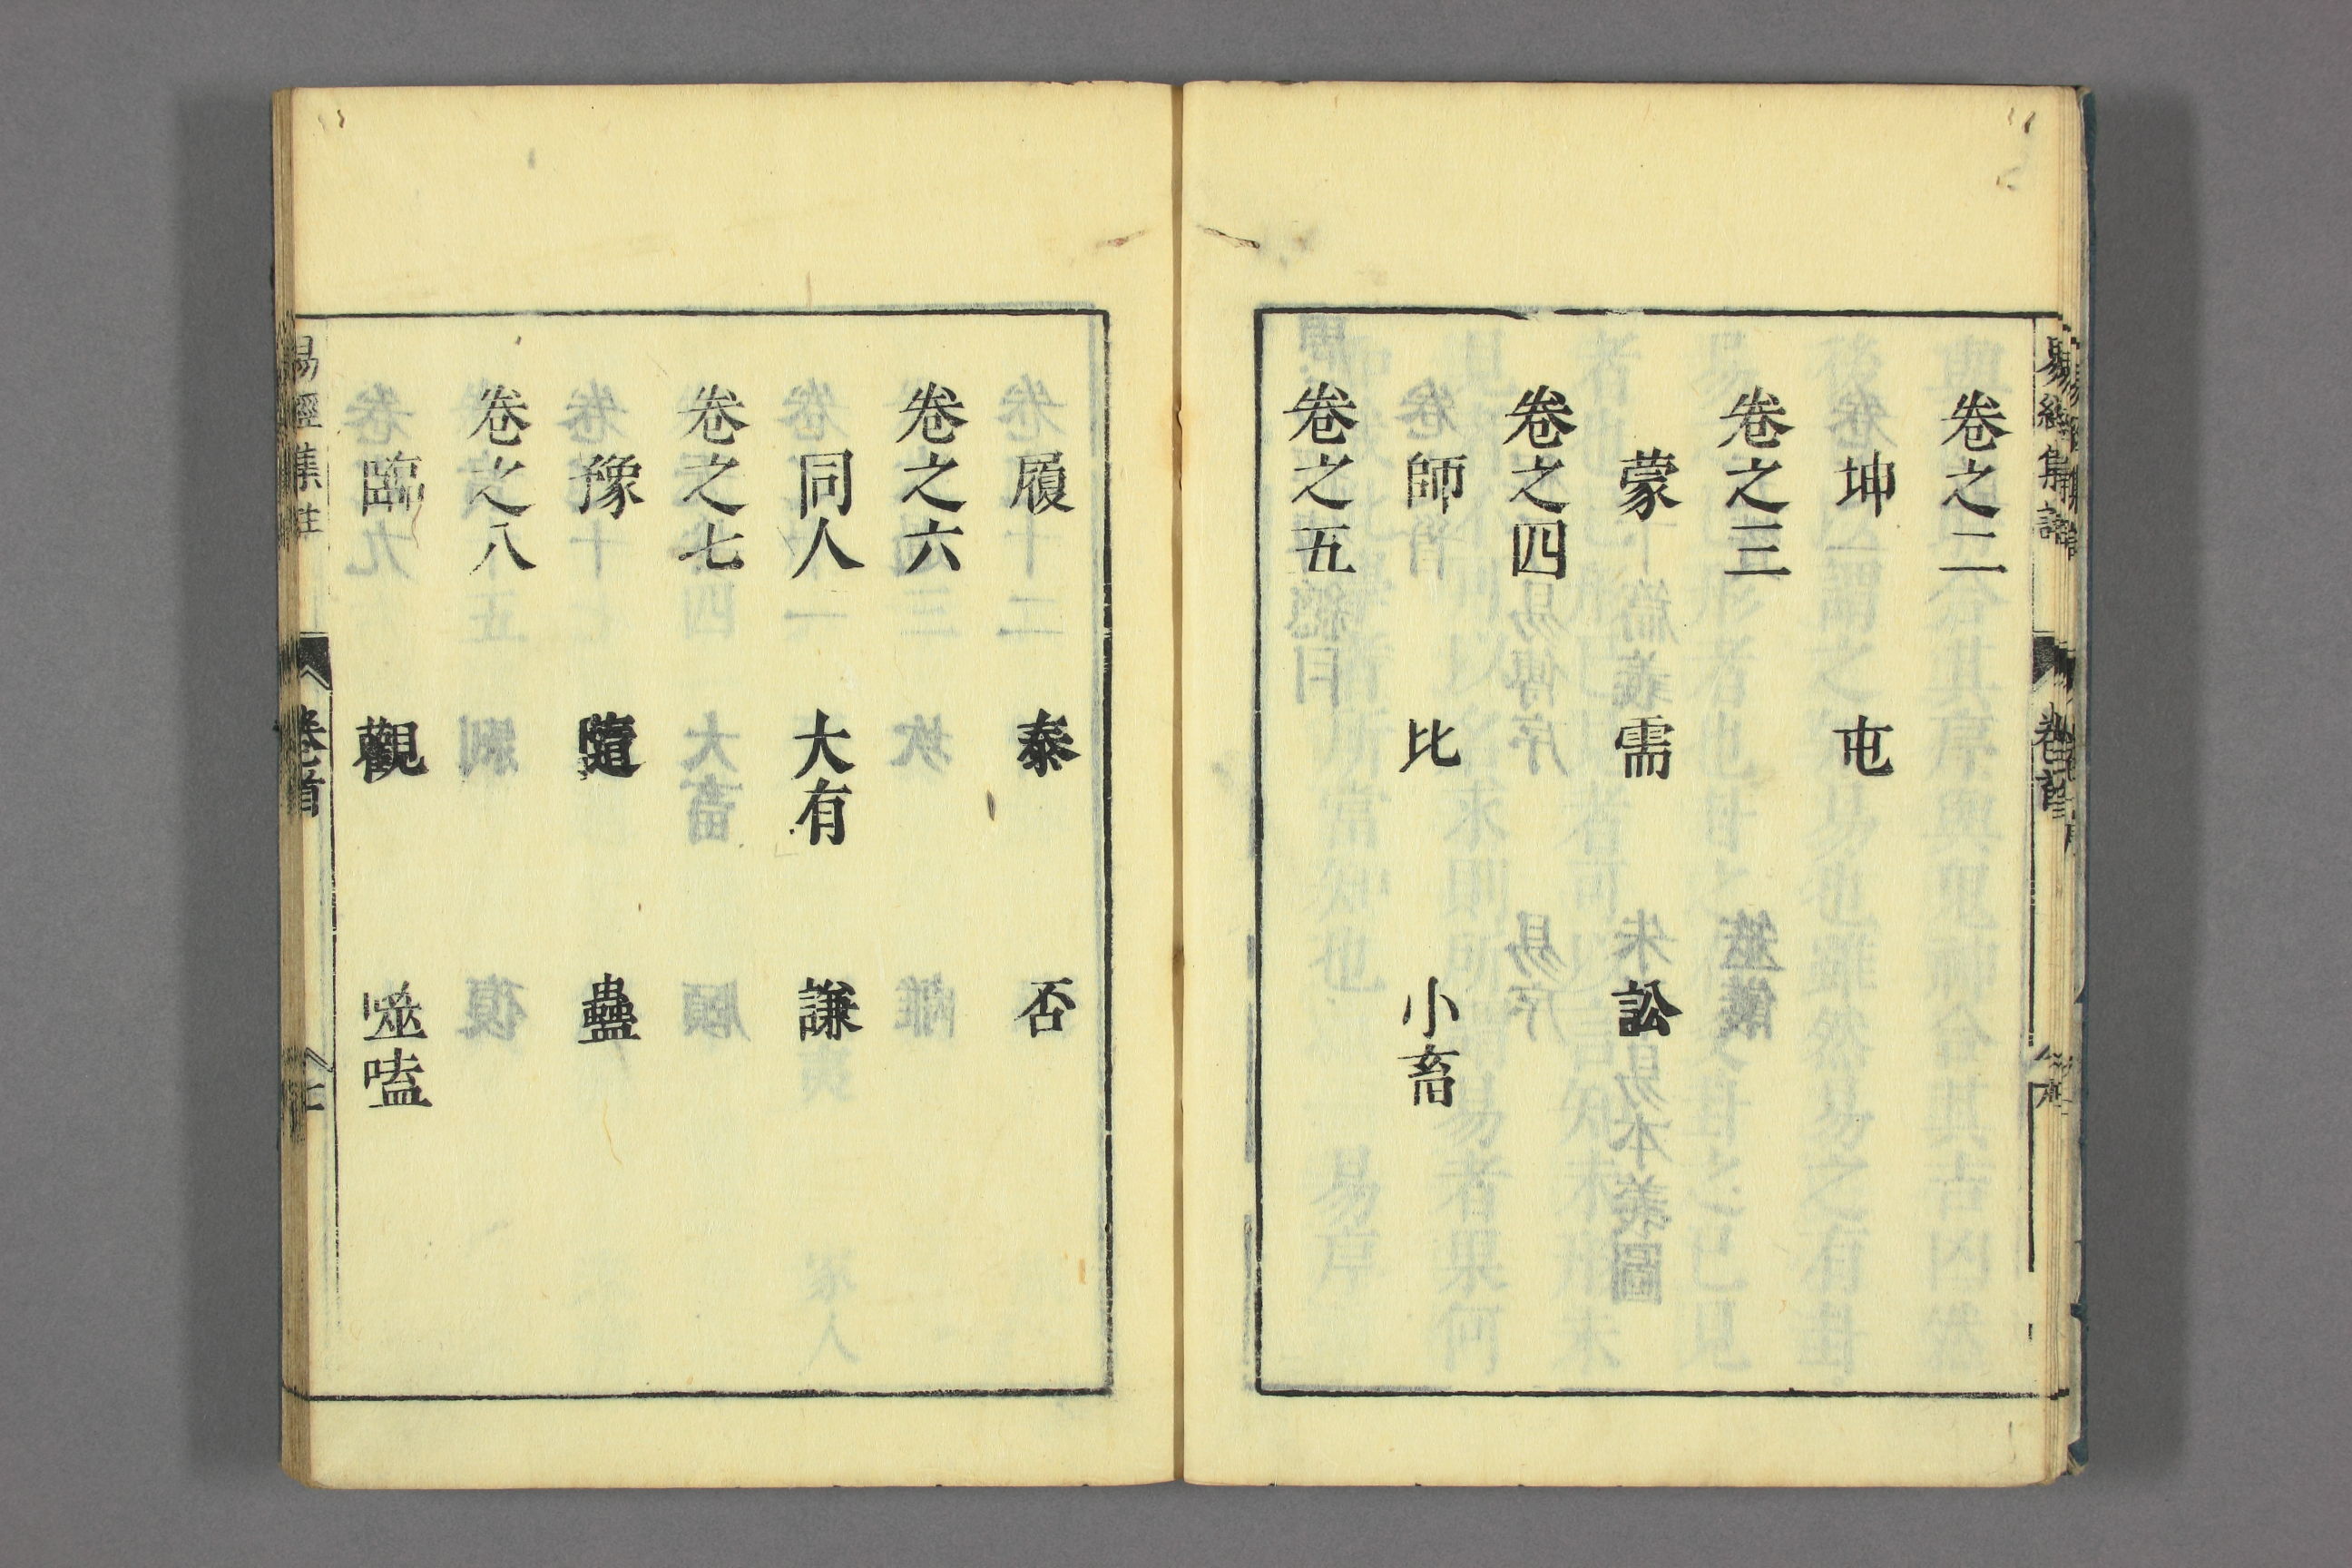 卷之二
坤 屯
卷之三
蒙 需 訟
卷之四
師 比 小畜
卷之五
履 泰 否
卷之六
同人 大有 謙
卷之七
豫 隨 蠱
卷之八
臨 觀 噬嗑
易經集註 卷首